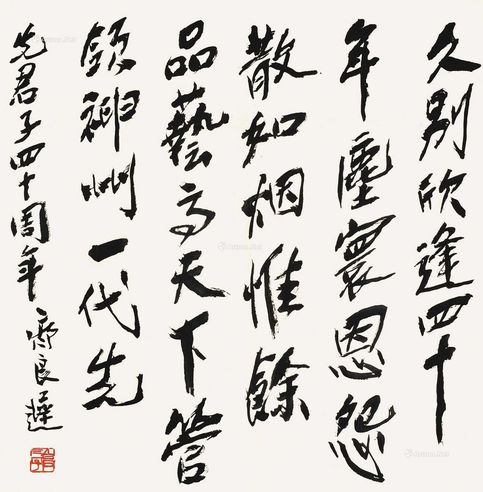 久別欣逢四十
年塵寰恩怨
散如烟惟餘
品藝高天下管
領神州一代先
先君子四十周年 齊良遲